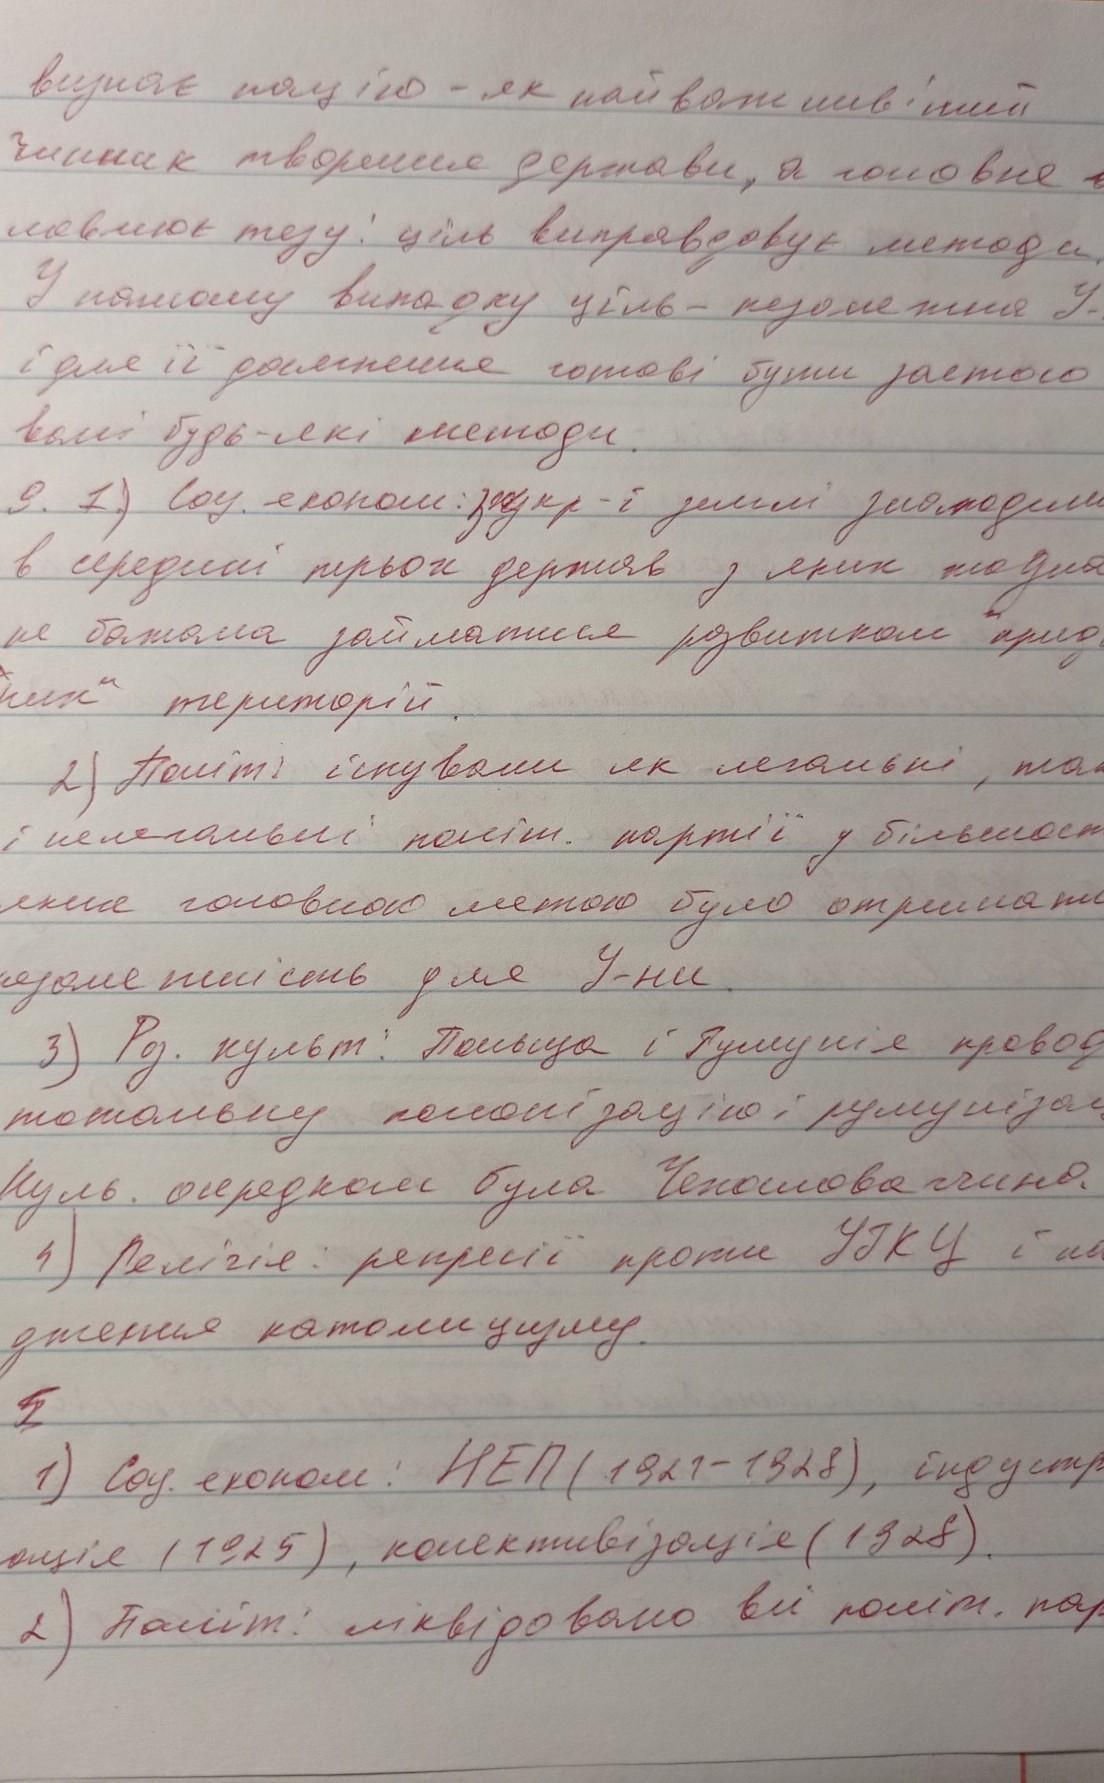 визнає націю - як найважливіший
чинник творення держави, а головне
мовлює тезу: ціль виправдовує методи.
У нашому випадку ціль - незалежна У-
і для її досягнення готові бути застосо
вані будь-які методи.
9. 1) Соц. економ: укр-і землі знаходили
в середині трьох держав з яких жодна
не бажала займатися розвитком "прид
них" територій.
2) Політ: існували як легальні, так
і нелегальні політ. партії у більшост
яких головною метою було отримати
незалежність для У-ни.
3) Роз. культ: Польща і Румунія провод
тотальну полонізацію і румунізац
Куль. осередком була Чехословаччина.
4) Релігія: репресії проти УГКЦ і на
дження католицизму.
1) Соц. економ: НЕП (1921-1928), індустр
ація (1925), колективізація (1928).
2) Політ: ліквідовано всі політ. пар